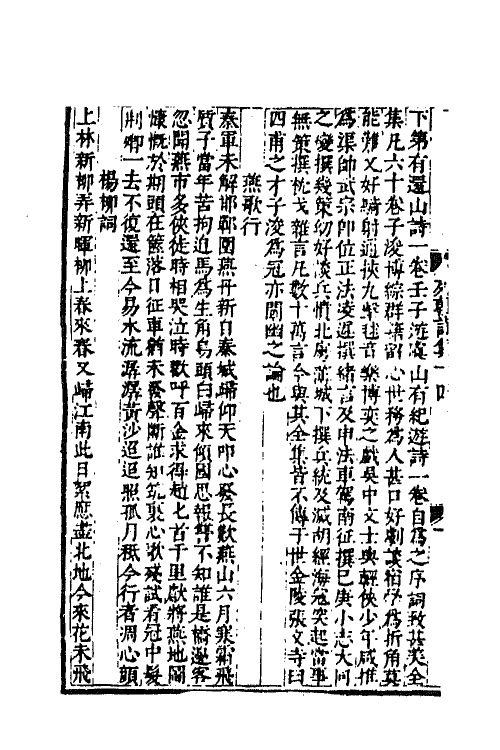 下第有還山詩一卷壬子遊虞山有紀遊詩一卷自爲之序詞致甚美全
集凡六十卷子浚博綜群藉留心世務爲人甚口好劇談相學爲折角莫
能難又好騎射通挾九擊毬音樂博奕之戲吳中文士與輕俠少年咸推
爲渠帥武宗即位正法凌遲撰緒言及申法車駕南征撰已庚小志大同
之變撰幾策幼好談兵憤北虜薄城下撰兵統及滅胡經海寇突起當事
無策撰枕戈雜言凡數十萬言今與其全集皆不傳于世金陵張文寺曰
四甫之才子浚爲冠亦閩幽之論也
燕歌行
秦軍未解邯鄲圍燕丹新自秦城歸仰天叩心發長歎燕山六月寒霜飛
質子當年苦拘迫馬爲生角烏頭白歸來傾國思報讐不知誰是橋邊客
忽聞燕市多俠徒時相哭泣時歡呼百金求得趙匕首千里獻將燕地圖
慷慨於期頭在篋落日征車猶未發聲斷誰知筑裏心歌殘試看冠中髮
荆卿一去不復還至今易水流潺潺黃沙迢迢照孤月秪今行者凋心顏
楊柳詞
上林新柳弄新暉柳上春來春又歸江南此日絮應盡北地今來花未飛